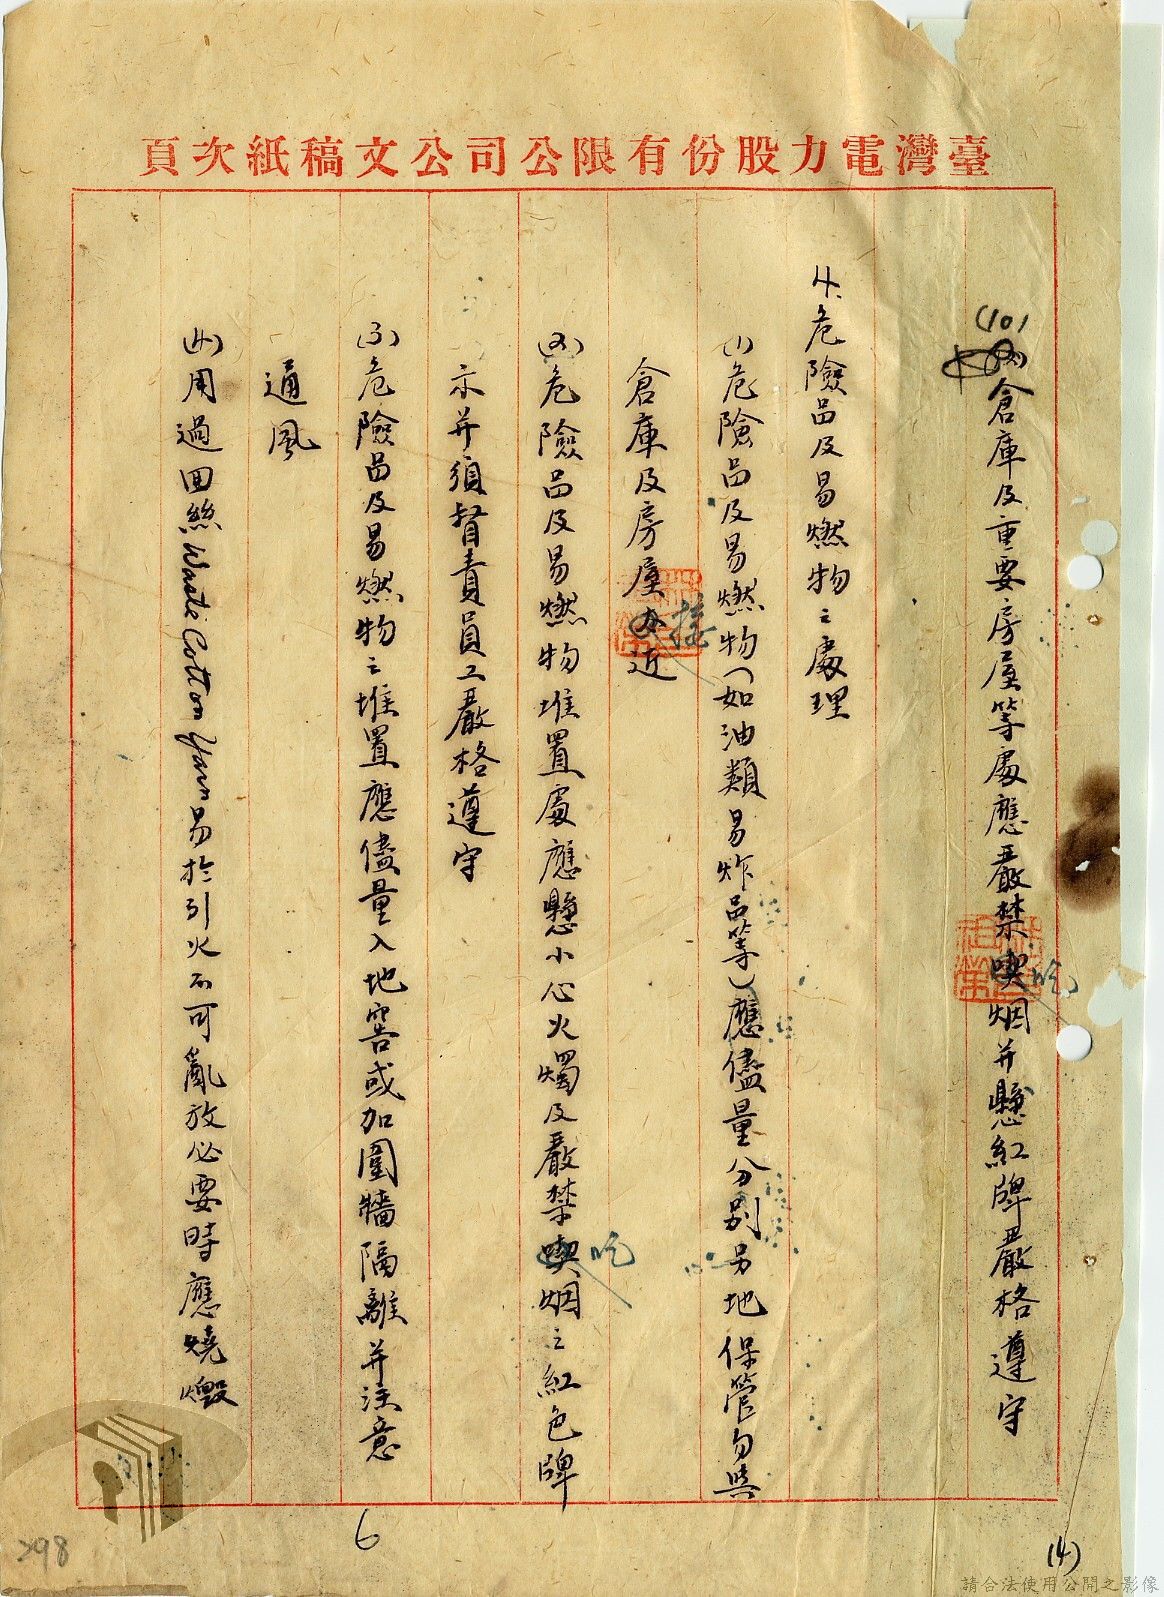 臺灣電力股份有限公司公文稿紙次頁
(10)倉庫及重要房屋等處應嚴禁喫吃烟并懸紅牌嚴格遵守
4.危險品及易燃物之處理
(1)危險品及易燃物(如油類易炸品等)應儘量分別另地保管勿與
倉庫及房屋接近
(2)危險品及易燃物堆置處應懸小心火燭及嚴禁喫吃烟之紅色牌
示并須督責員工嚴格遵守
(3)危險品及易燃物之堆置應儘量入地窖或加圍牆隔離并注意
通風
(4)用過回絲Waste Cotton Yarn易於引火不可亂放必要時應燒燬
6
(4)
298
請合法使用公開之影像